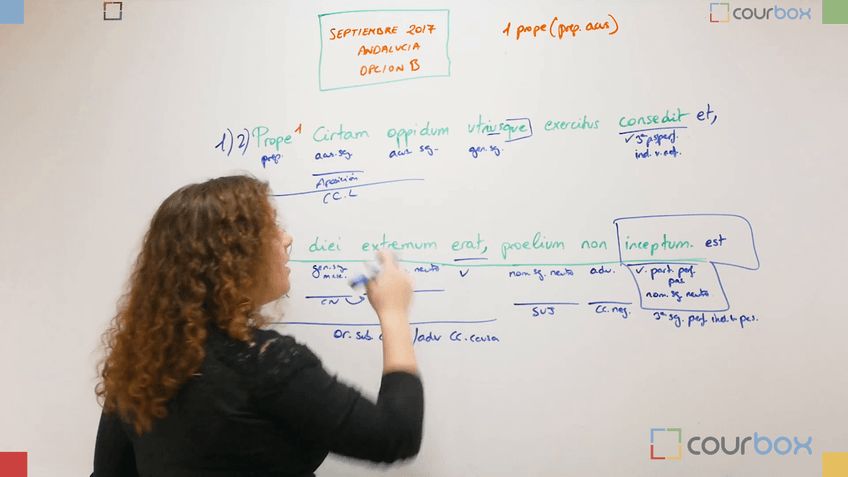 courbox
SEPTIEMBRE 2017
ANDALUCIA
OPCION B
1 prope (prep. acus)
1) 2) Prope¹ Cirtam oppidum utriusque exercitus consedit et,
prep. acus. sg. acus sg. gen. sg. v 3ª ps perf.
ind. v. act.
Aposición
CC.L
diei extremum erat, proelium non inceptum. est
gen. sg. neutro v nom. sg. neutro adv. v. part. perf.
masc. pas
nom. sg. neutro
CN SUJ CC. neg. 3ª sg. perf. ind. v. pas.
Or. sub. /adv CC. causa
courbox